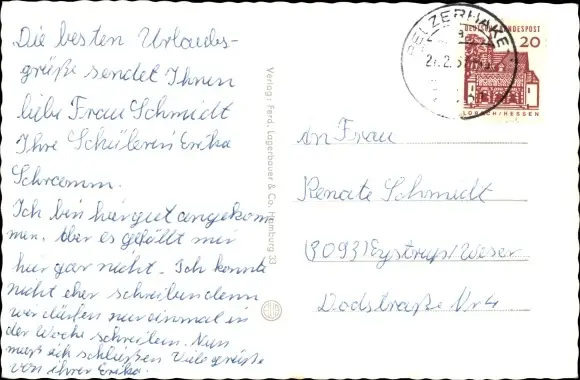 Die besten Urlaubs-
grüße sendet Ihnen
liebe Frau Schmidt
Ihre Schülerin Erika
Schramm.
Ich bin hier gut angekom
men. Aber es gefällt mir
hier gar nicht. Ich konnte
nicht eher schreiben denn
wir dürfen nur einmal in
der Woche schreiben. Nun
muß ich schließen Viele grüße
von ihrer Erika.
Verlag: Ferd. Lagerbauer & Co. Hamburg 33
PELZERHAKEN
DEUTSCHE BUNDESPOST
20
LORSCH/HESSEN
An Frau
Renate Schmidt
(309) Eystrup/Weser
Dodstraße Nr 4